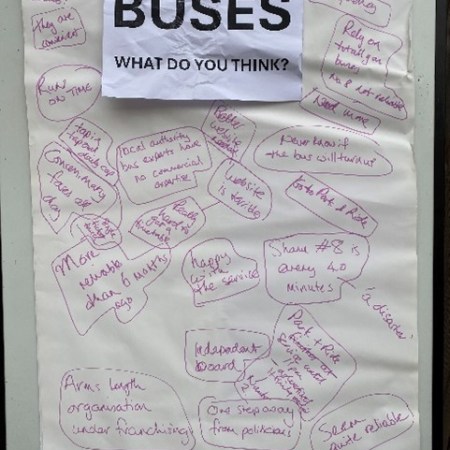 BUSES
WHAT DO YOU THINK?
they are
Rely on
buses
No 8 not reliable
Need more
RUN
ON TIME
tap in
tap out
Better
website
local authority
bus experts have
no commercial
expertise
Never know if
the bus will turn up
website
is terrible
fares
day
Really
hard to
get a
timetable
Park & Ride
More
reliable
than 6 months
ago
happy
with
the service
Shame #8 is
every 40
minutes
'a disaster'
Park + Ride
Independent
board
Arms length
organisation
under franchising
One step away
from politicians
Seem
quite reliable